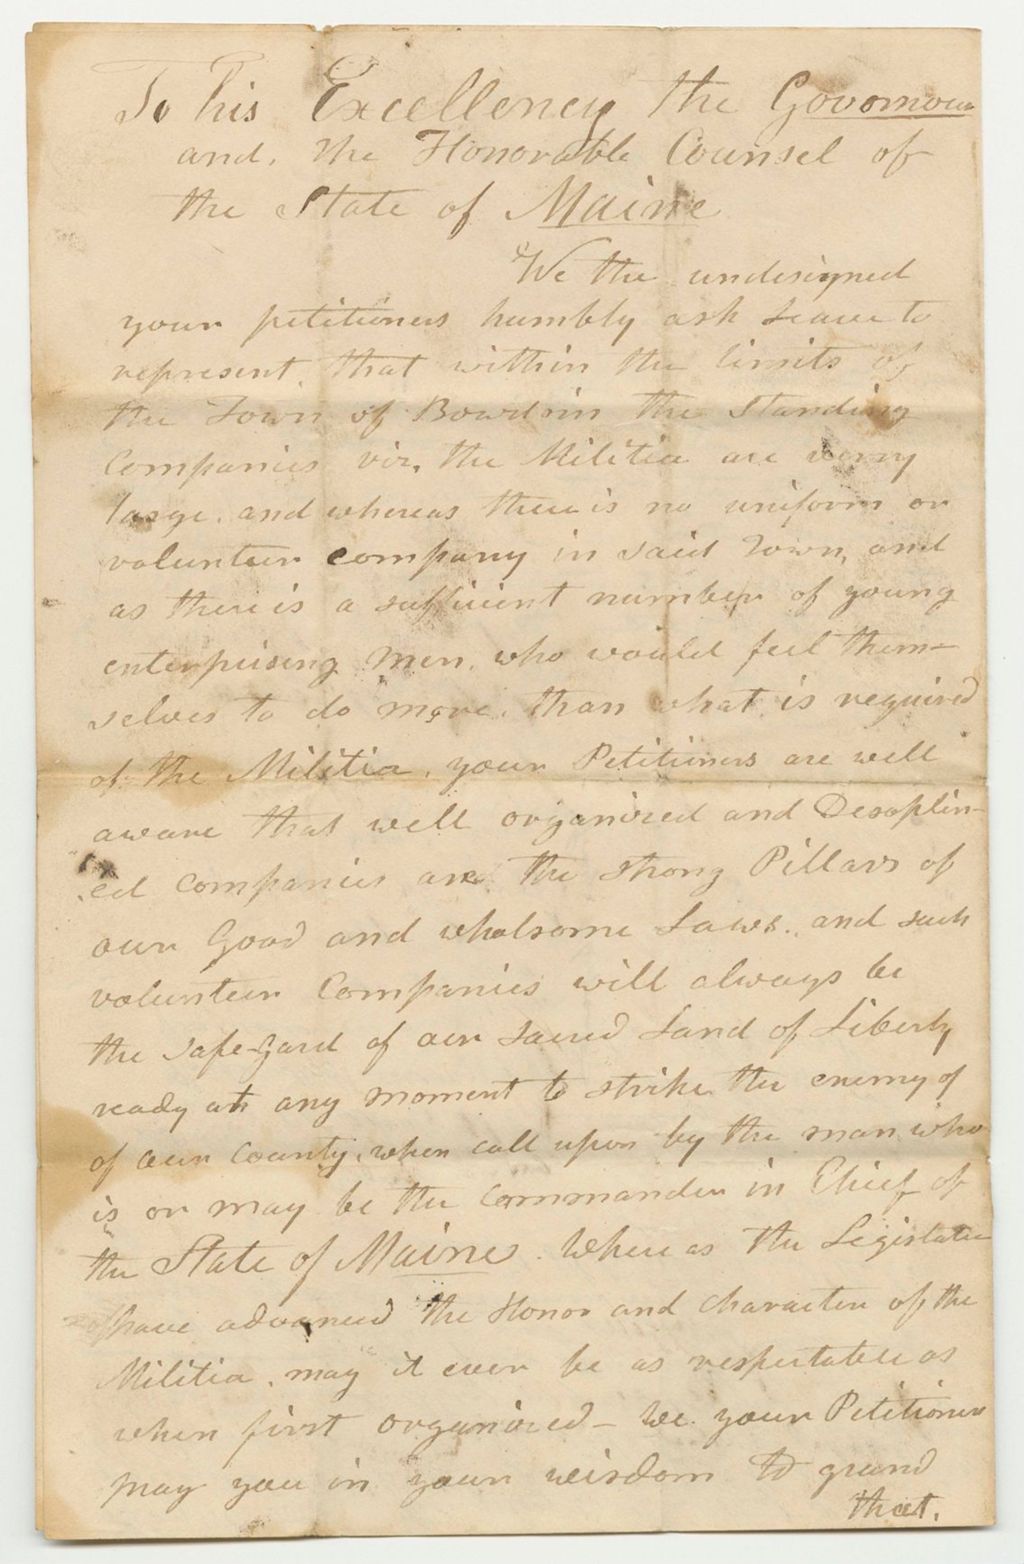 To his Excellency the Govornour
and, the Honorable Counsel of
the State of Maine
We the undesigned
your petitioners humbly ask Leave to
represent, that within the limits of
the Town of Bowdoin the Standing
Companies viz, the Militia are verry
large. and whereas there is no uniform or
volunteer company in said Town, and
as there is a sufficient number of young
enterprising Men, who would feel them-
selves to do more, than what is required
of the Militia, your Petitioners are well
aware that well organized and Desaplin-
ed companies are the strong Pillars of
our Good and wholsome Laws, and such
volunteer Companies will always be
the safe-gard of our sacred Land of Liberty
ready at any moment to strike the enemy of
of our County, when call upon by the man who
is or may be the Commander in Chief of
the State of Maine. Where as the Legislature
have advanced the Honor and character of the
Militia, may it ever be as respectable as
when first organized - We your Petitioners
pray you in your wisdom to grand
that.